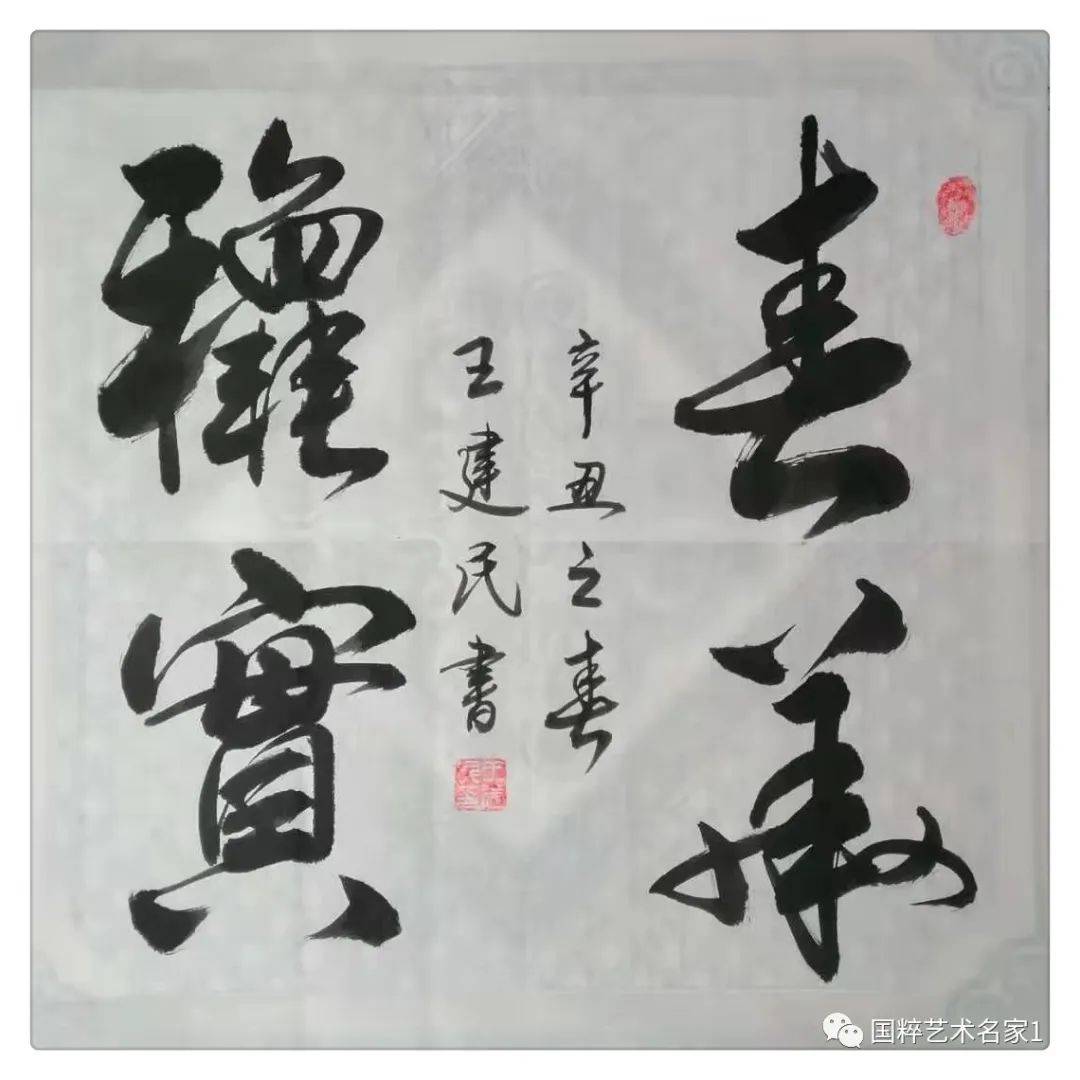 春華
龝實
辛丑之春
王建民書
国粹艺术名家1